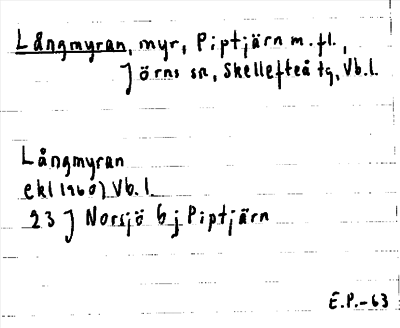 Långmyran, myr, Piptjärn m.fl.,
Jörns sn, Skellefteå tg, Vb.l.
Långmyran
ekl(1960) Vb.l
23 J Norsjö 6 j Piptjärn
E.P.-63